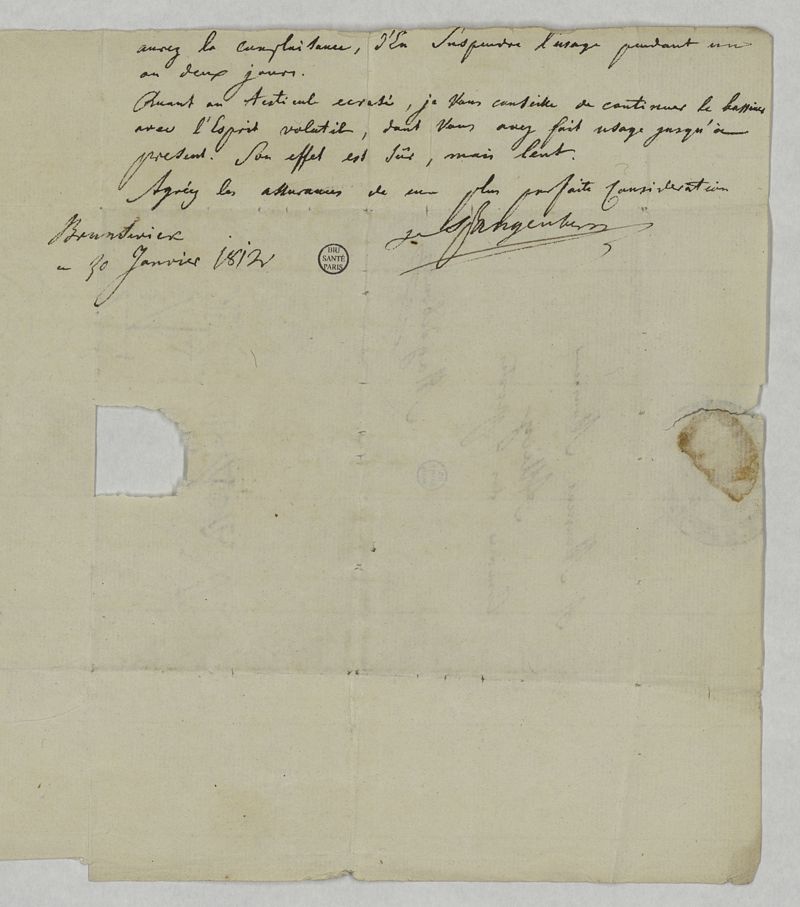 aurez la complaisance, d'En suspendre l'usage pendant un
ou deux jours.
Quant au testicule ecrasé, je vous conseille de continuer le bassiner
avec l'Esprit volatil, dont vous avez fait usage jusqu'à
present. Son effet est sûr, mais lent.
Agréez les assurances de ma plus parfaite Consideration
Brunsvick
30 Janvier 1812
BIU
SANTÉ
PARIS